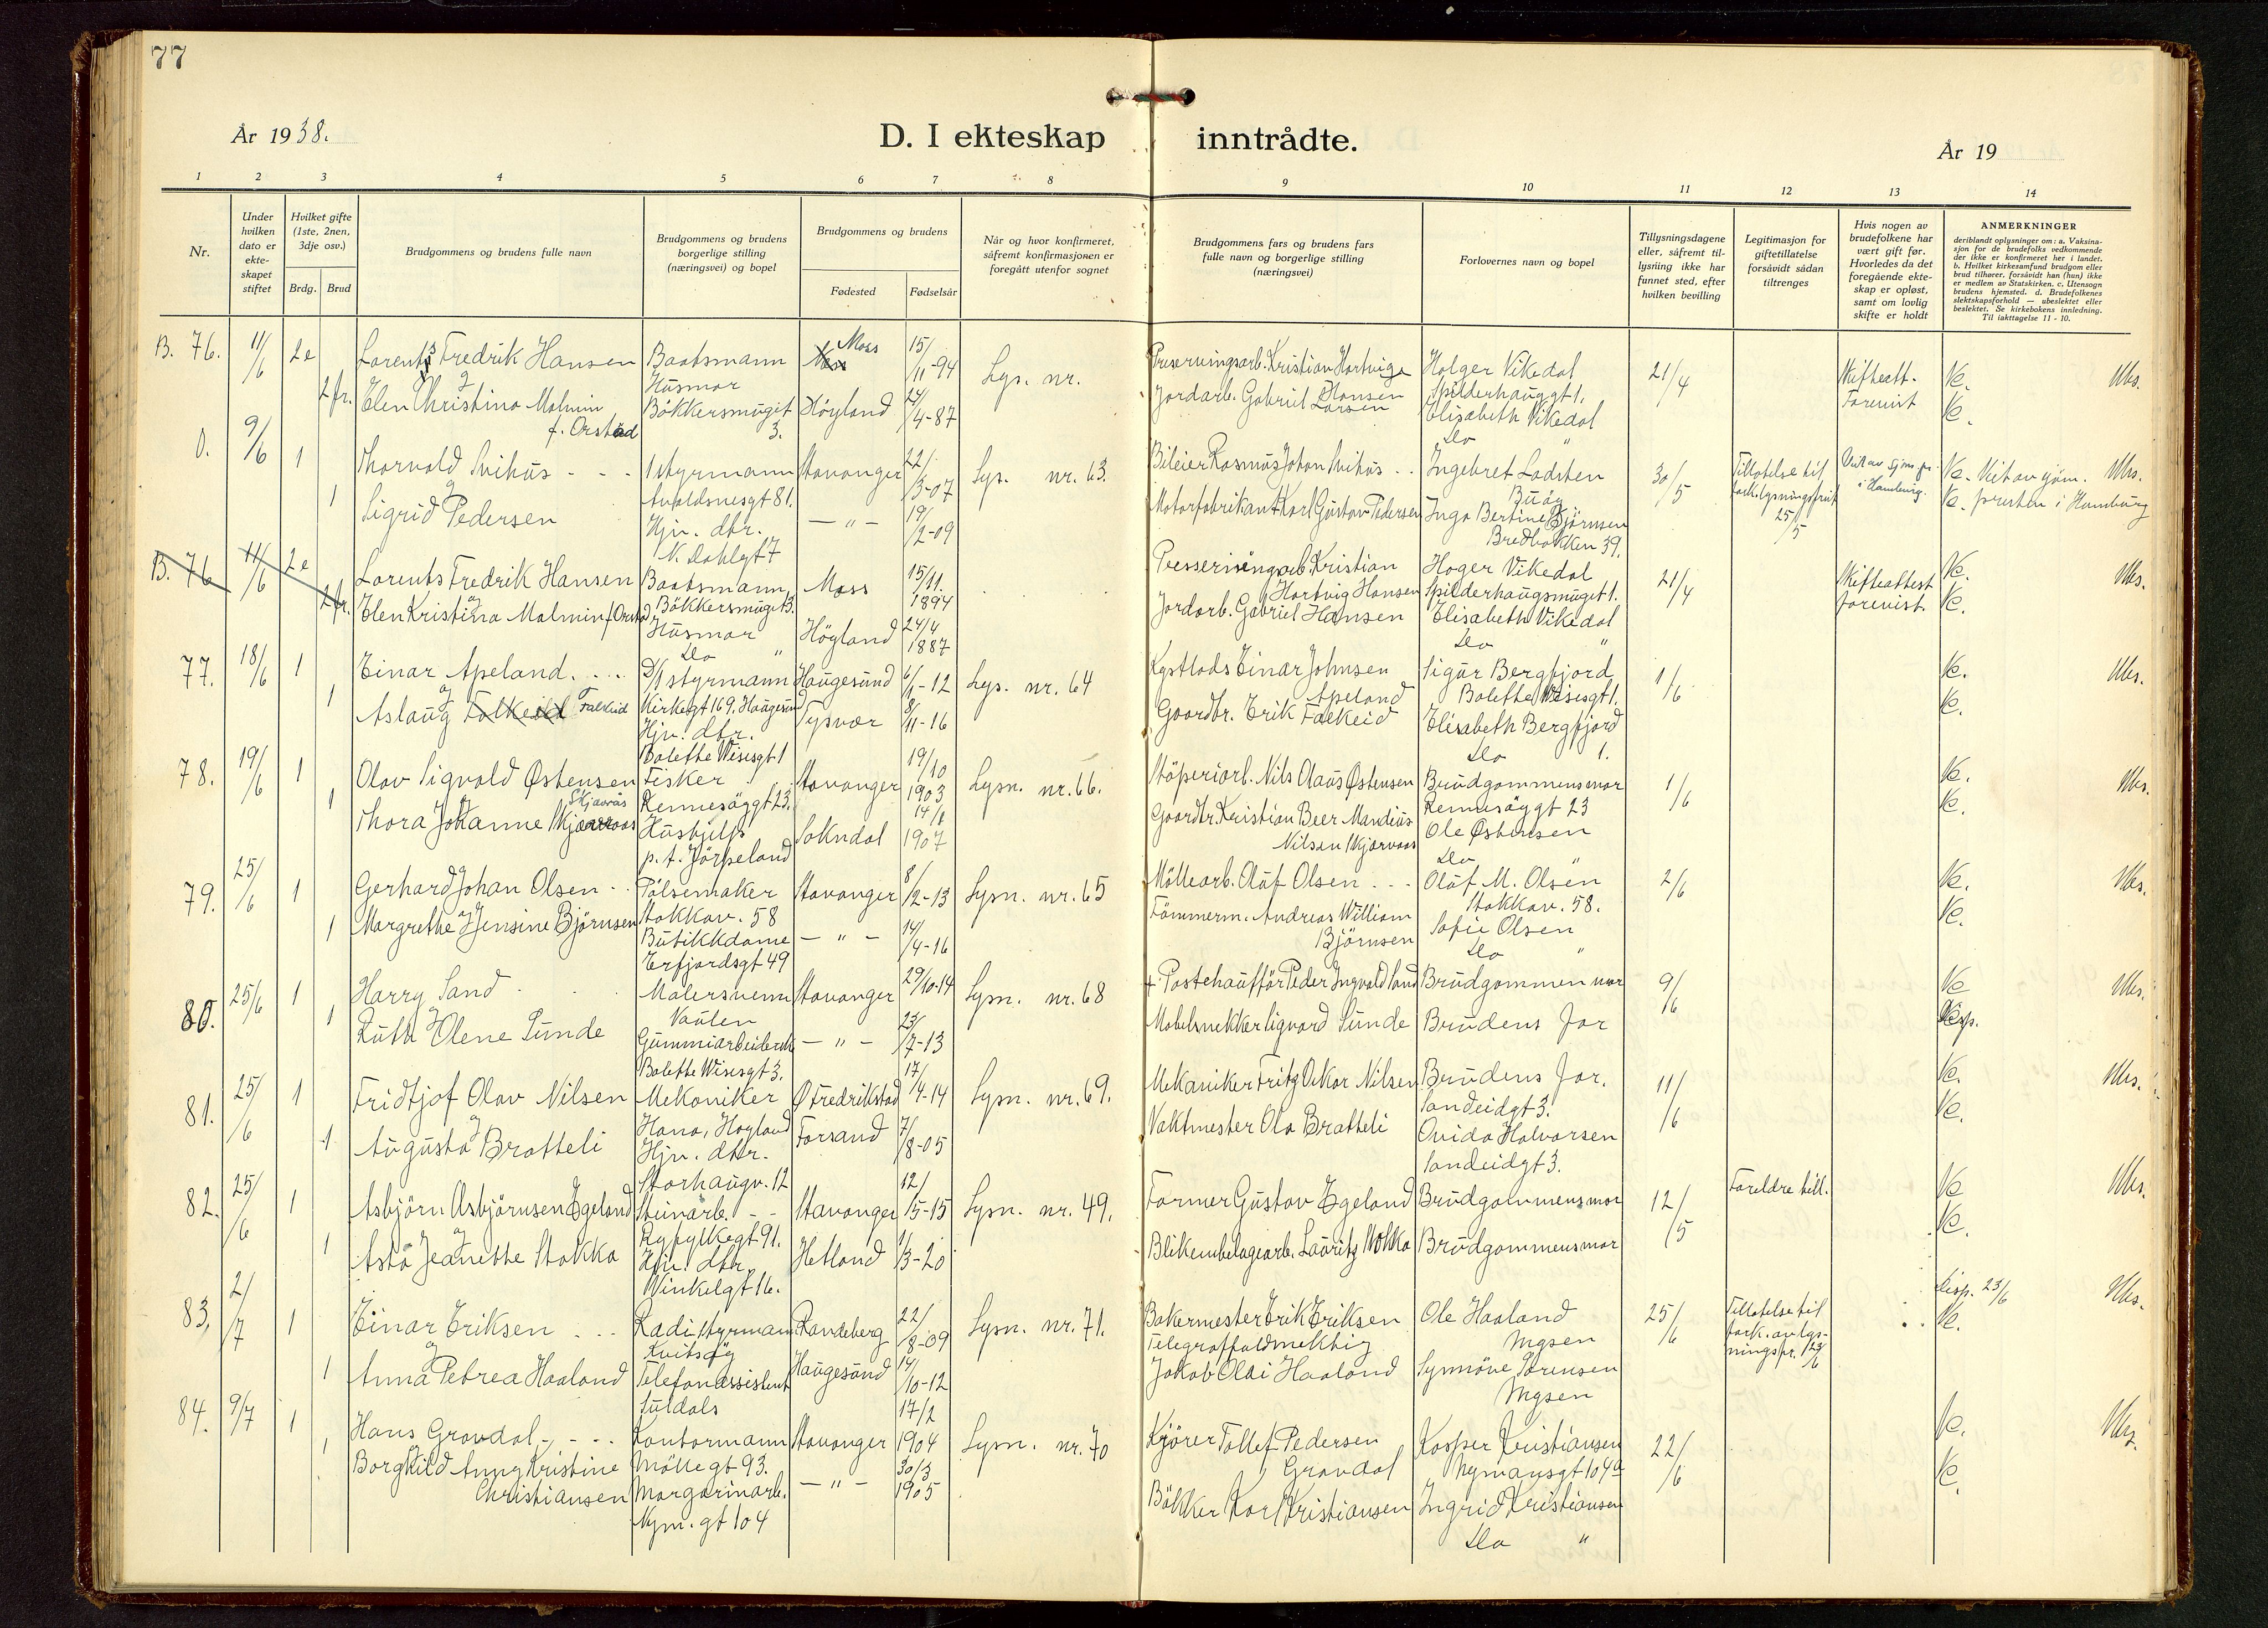 77
År 1938.
D. I ekteskap inntrådte.
År 19
1 2 3 4 5 6 7 8 9 10 11 12 13 14
Nr.
Under hvilken dato er ekte-skapet stiftet
Hvilket gifte (1ste, 2nen, 3dje osv.)
Brdg. Brud
Brudgommens og brudens fulle navn
Brudgommens og brudens borgerlige stilling (næringsvei) og bopel
Brudgommens og brudens
Fødested Fødselsår
Når og hvor konfirmeret, såfremt konfirmasjonen er foregått utenfor sognet
Brudgommens fars og brudens fars fulle navn og borgerlige stilling (næringsvei)
Forlovernes navn og bopel
Tillysningsdagene eller, såfremt til-lysning ikke har funnet sted, efter hvilken bevilling
Legitimasjon for giftetillatelse forsåvidt sådan tiltrenges
Hvis nogen av brudefolkene har vært gift før. Hvorledes da det foregående ekte-skap er opløst, samt om lovlig skifte er holdt
ANMERKNINGER
deriblandt oplysninger om: a. Vaksina-sjon for de brudefolks vedkommende der ikke er konfirmeret her i landet. b. Hvilket kirkesamfund brudgom eller brud tilhører, forsåvidt han (hun) ikke er medlem av Statskirken. c. Utensogn brudens hjemsted. d. Brudefolkenes slektskapsforhold — ubeslektet eller beslektet. Se kirkebokens innledning. Til iakttagelse 11 - 10.
B. 76. 11/6 2e Lorents Fredrik Hansen Baatsmann Moss 15/11-94 Lys. nr. Kristian Hartvig Hansen Holger Vikedal 21/4 Skifteatt. Ve. Ubs.
og
2 fr. Elen Christina Malmin f. Orstad Husmor Bökkersmuget 3. Höyland 24/4-87 Jordarb. Gabriel Larsen Spilderhauggt 1. Elisabeth Vikedal Do " Forevist Ve.
0. 9/6 1 Thorvald Svihus 1 styrmann Avaldsnesgt 81. Stavanger 22/3-07 Lys. nr. 63. Bileier Rasmus Johan Svihus Ingebret Ladsten Buöy 30/5 Tillatelse til 25/5 i Hamburg. Ve. Viet av sjøm. Ubs.
og
1 Sigrid Pedersen Hjv. dtr. N. Dahlsgt 7 — " — 19/2-09 Motorfabrikant Karl Gustav Pedersen Inga Bertine Björnsen Bredbakken 39. Ve. presten i Hamburg
B. 76 11/6 2e Lorents Fredrik Hansen Baatsmann Bökkersmuget 3. Moss 15/11. 1894 Kristian Hartvig Hansen Hoger Vikedal Spilderhaugsmuget 1. 21/4 Skifteattest Ve. Ubs.
og
2 fr. Elen Kristina Malmin f. Orstad Husmor Do " Högland 24/4 1887 Jordarb. Gabriel Hansen Elisabeth Vikedal Do " forevist. Ve.
77. 18/6 1 Einar Apeland D/1 styrmann Kirkegt 169. Haugesund Haugesund 6/1-12 Lys. nr. 64 Kystlods Einar Johnsen Apeland Sigur Bergfjord Bolette Wiesesgt 1. 1/6 Ve. Ubs.
og
1 Aslaug Falkeid Hjv. dtr. Bolette Wisesgt 1 Tysvær 8/11-16 Gaardbr. Erik Falkeid Elisabeth Bergfjord Do 1. Ve.
78. 19/6 1 Olav Sigvald Østensen Fisker Rennesöygt 23. Stavanger 19/10 1903 Lysn. nr. 66. Stöperiarb. Nils Claus Østensen Brudgommens mor Rennesöygt 23 1/6 Ve. Ubs.
og
1 Thora Johanne Skjævrås Hushjelp p.t. Jörpeland Sokndal 1907 Gaardbr. Kristian Beer Mandius Nilsen Skjærvaas Ole Østensen Do " Ve.
79. 25/6 1 Gerhard Johan Olsen Pölsemaker Stokkav. 58 Stavanger 8/12-13 Lysn. nr. 65 Möllearb. Oluf Olsen Oluf M. Olsen Stokkav. 58. 2/6 Ve. Ubs.
og
1 Margrethe Jensine Björnsen Butikkdame Erfjordsgt 49 — " — 14/4-16 Tömmerm. Andreas William Björnsen Sofie Olsen Do " Ve.
80. 25/6 1 Harry Sand Malersvenn Vaulen Stavanger 29/10-14 Lysn. nr. 68 + Postchauffør Peder Ingvald Sand Brudgommen mor 9/6 Ve Ubs.
og
1 Ruth Olene Sunde Gummiarbeiderske Bolette Wisesgt 3. — " — 23/7-13 Mobelsnekker Sigvard Sunde Brudens far
81. 25/6 1 Fridtjof Olav Nilsen Mekaniker Hana, Høyland Ø Fredrikstad 17/4-14 Lysn. nr. 69. Mekaniker Fritz Oskar Nilsen Brudens far. Sandeidgt 3. 11/6 Ve. Ubs.
og
1 Augusta Bratteli Hjv. dtr. Storhaugv. 12 Forsand 7/8-05 Vaktmester Ola Bratteli Ovida Halvorsen Sandeidgt 3. Ve.
82. 25/6 1 Asbjörn Asbjörnsen Egeland Stuinarb. Ryfylkegt 91. Stavanger 12/5-15 Lysn. nr. 49. Former Gustav Egeland Brudgommens mor 12/5 Foreldre till. Ve Ubs.
og
1 Asta Jeanette Stokka Hjv. dtr. Winkelgt 16. Hetland 1/3-20 Blikemballagearb. Lauritz Stokka Brudgommens mor Ve.
83. 2/7 1 Einar Eriksen Radi styrmann Kvitsøy Randeberg 22/8-09 Lysn. nr. 71. Bakermester Erik Eriksen Ole Haaland 25/6 Tillatelse til fork. av lys-ningsfr. 23/6 Disp. 23/6 Ve. Ubs.
og
1 Anna Petrea Haaland Telefonassistent Suldals Haugesund 14/10-12 Telegraffuldmektig Jakob Olai Haaland Synnöve Sörensen
84. 9/7 1 Hans Gravdal Kontormann Möllegt 93. Stavanger 17/2 1904 Lysn. nr. 70 Kjörer Tollef Pedersen Gravdal Kasper Kristiansen Nymansgt 104a 22/6 Ve. Ubs.
1 Borghild Anny Kristine Christiansen Margarinarb. Nym. gt 104 — " — 30/3 1905 Bökker Karl Kristiansen Ingrid Kristiansen Do " Ve.